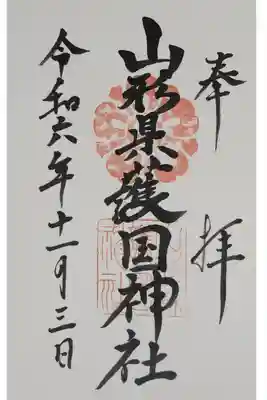 奉拝
山形県護国神社
令和六年十一月三日